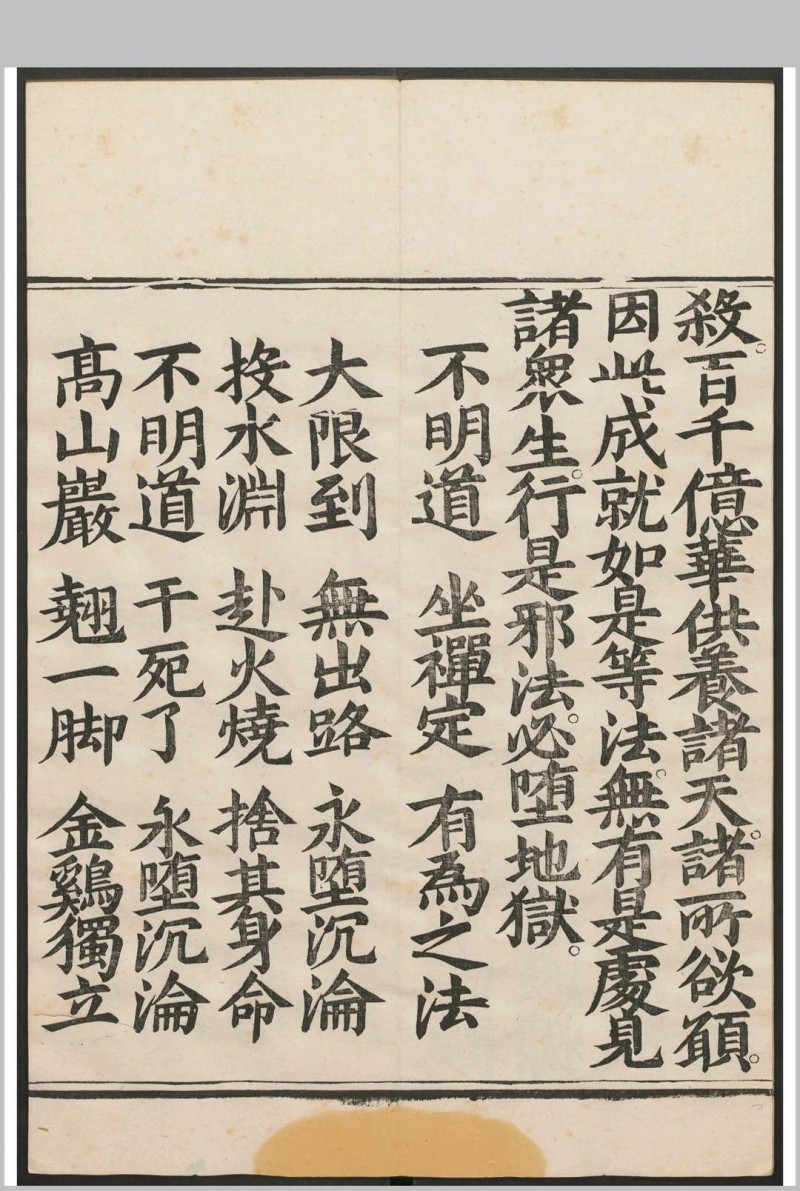 殺。百千億華供養諸天。諸所欲願。
因此成就如是等法。無有是處見
諸衆生。行是邪法。必墮地獄。
不明道　坐禪定　有爲之法
大限到　無出路　永墮沉淪
投水淵　赴火燒　捨其身命
不明道　干死了　永墮沉淪
高山巖　翹一脚　金鷄獨立